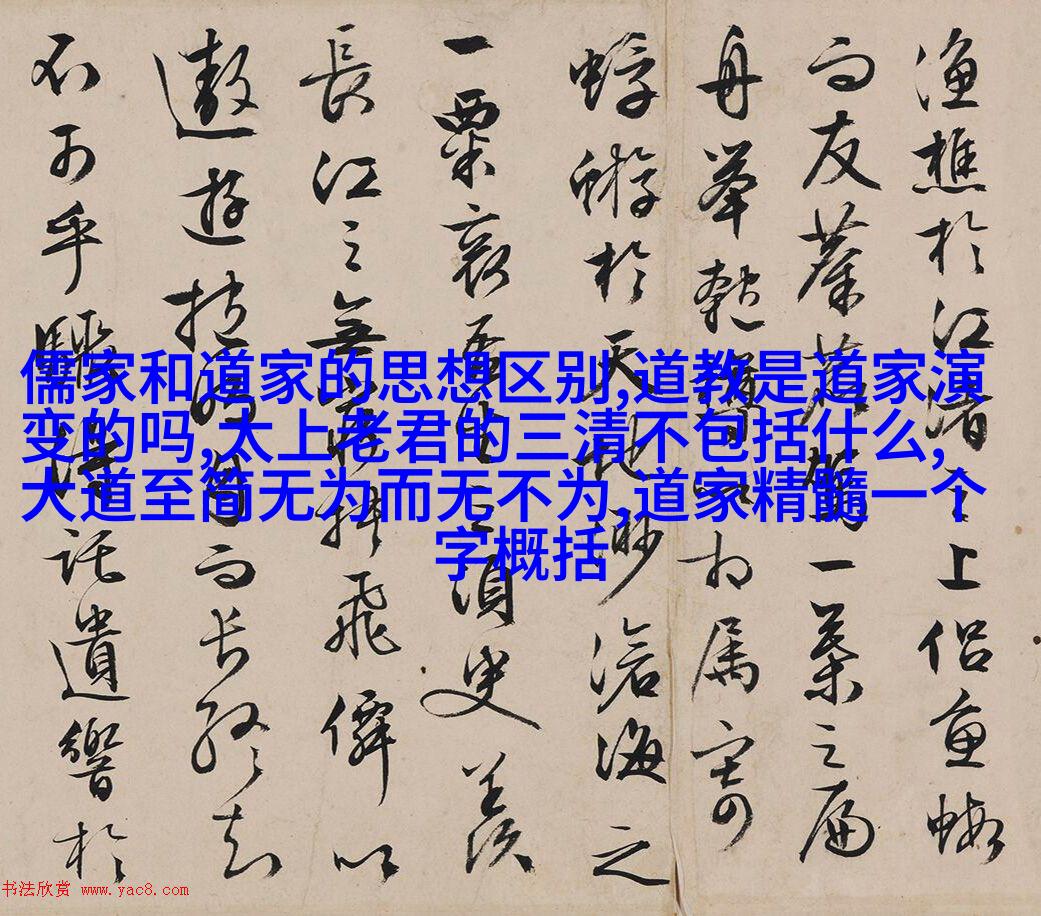 漁樵於江渚之上侶魚蝦
而友麋鹿駕一葉之扁
舟舉匏樽以相属寄
蜉蝣於天地眇滄海之
一粟哀吾生之須臾羨
長江之無窮挟飛僊以
遨遊抱明月而長終知
不可乎驟得託遺響於
儒家和道家的思想区别,道教是道家演
变的吗,太上老君的三清不包括什么,
大道至简无为而无不为,道家精髓一个
字概括
书法欣赏 www.yac8.com